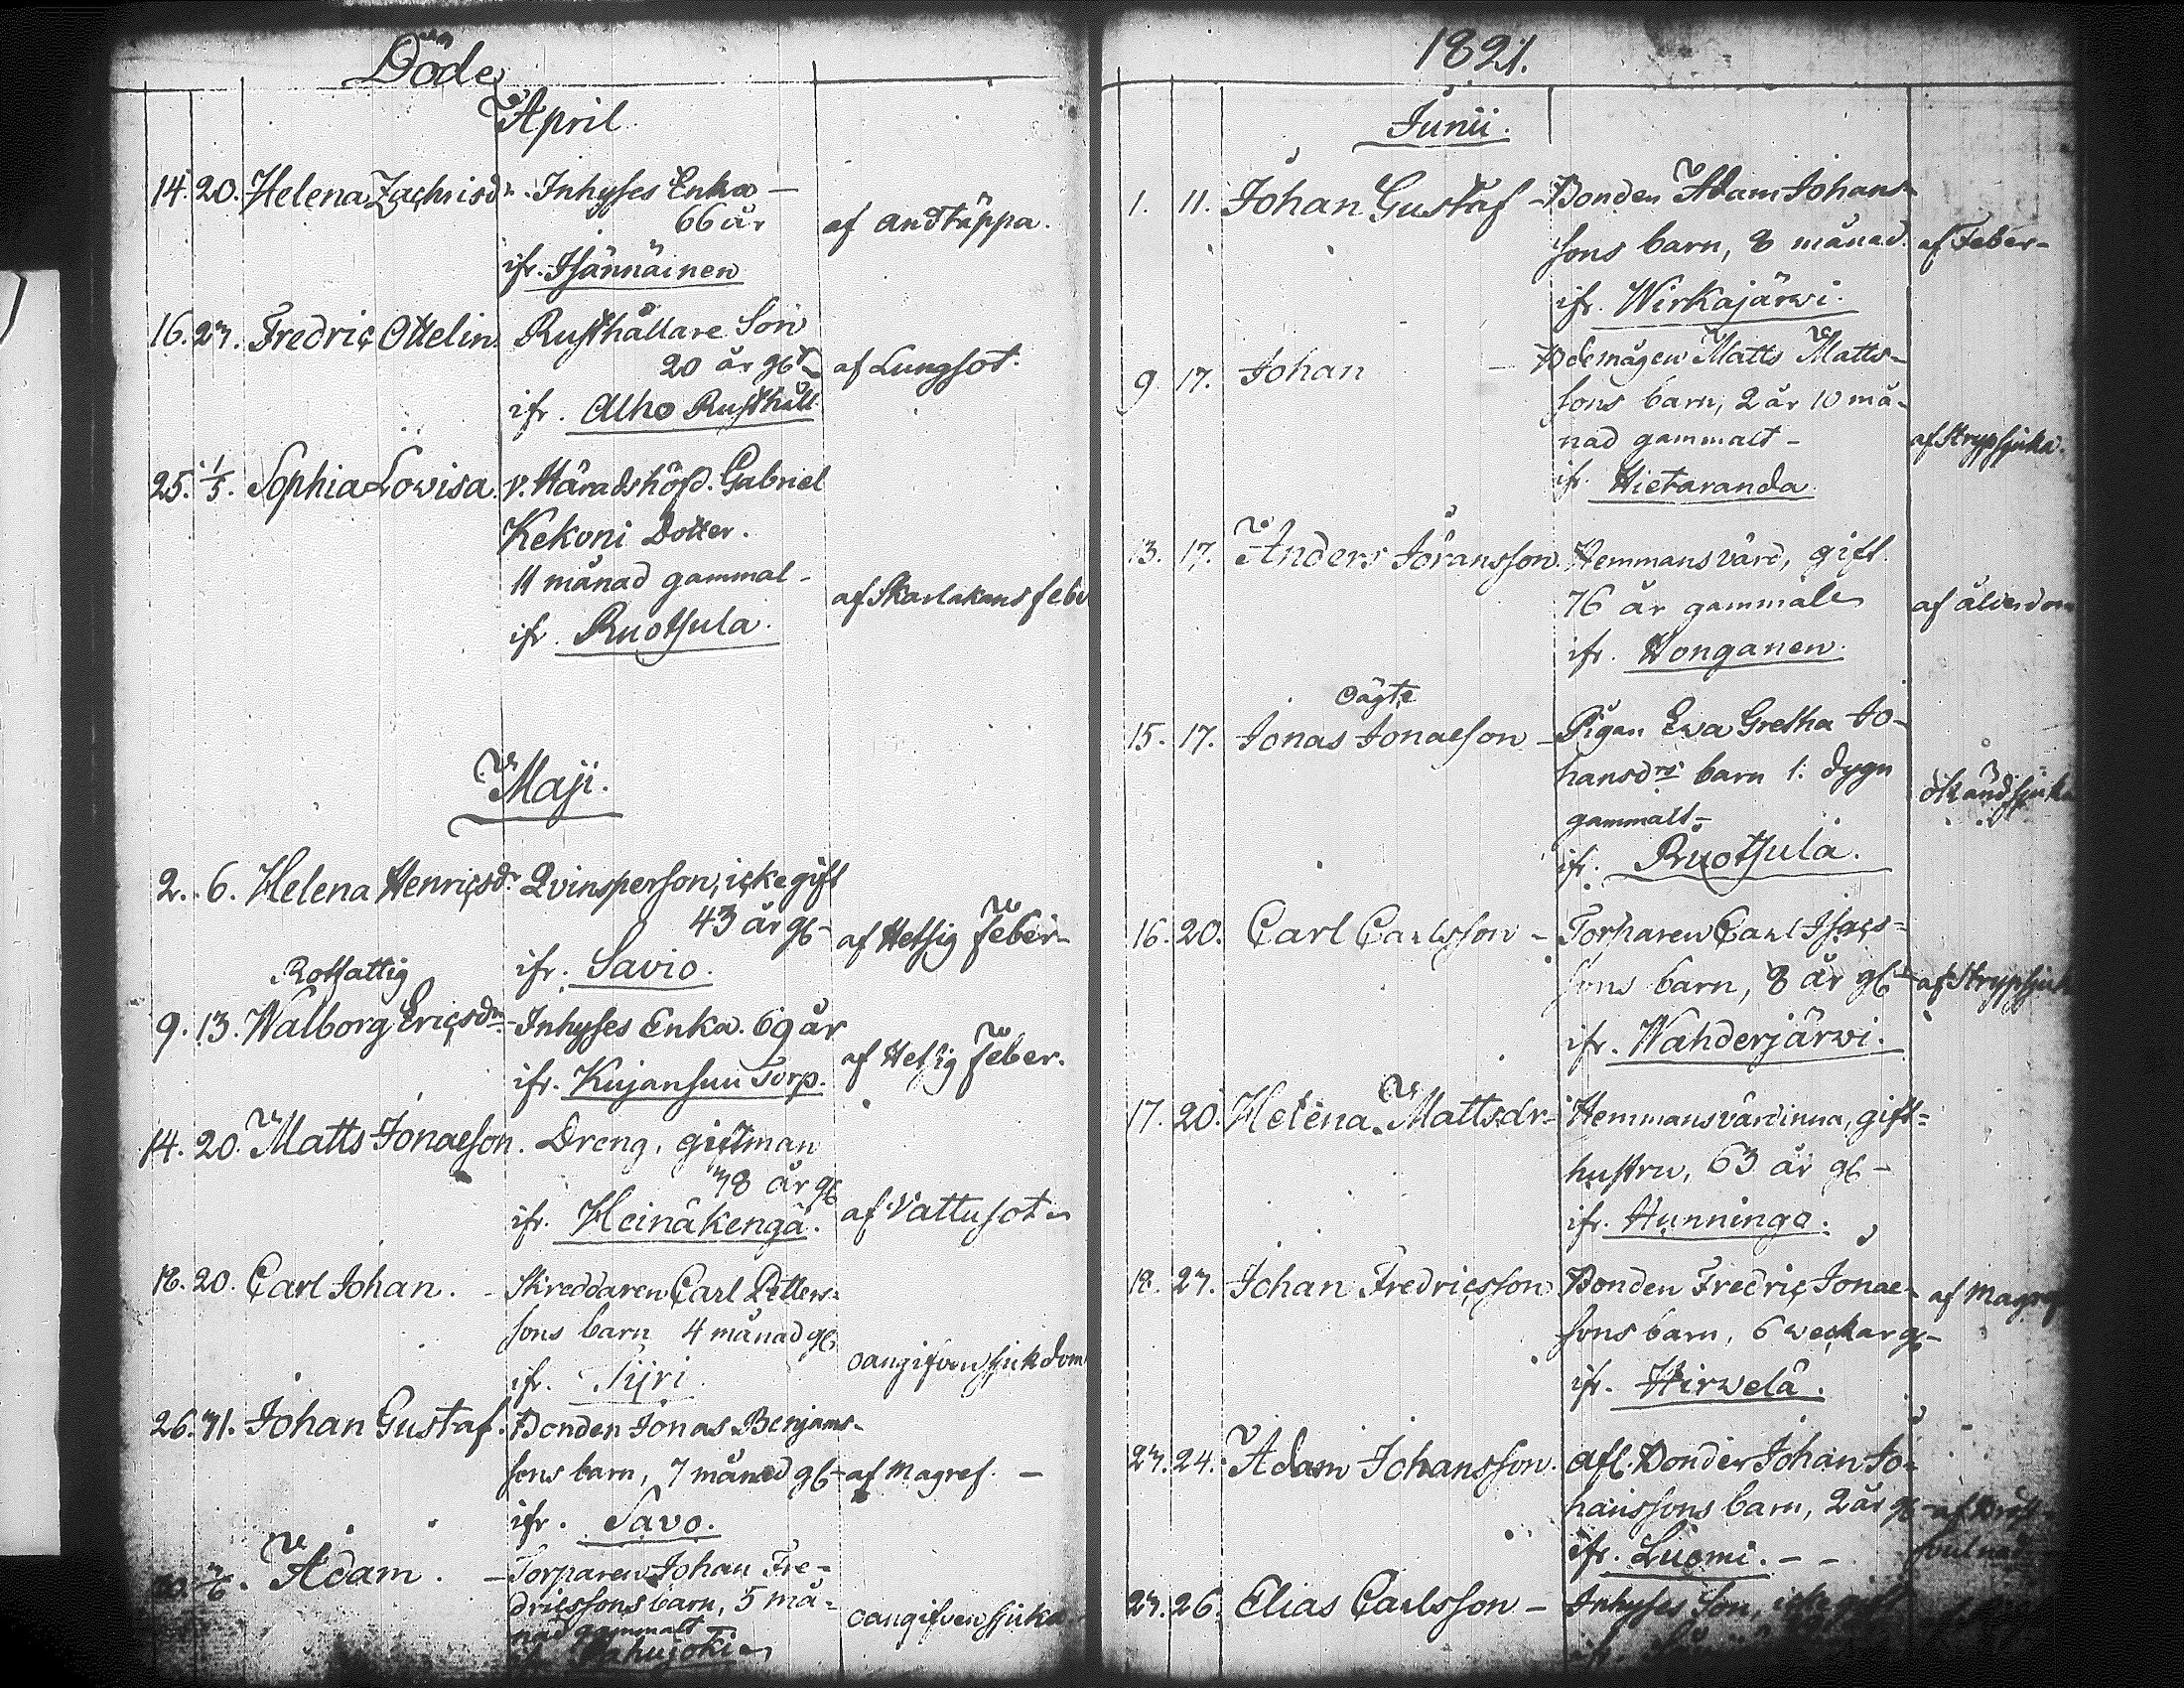 Döde
April
14. 20. Helena Zachrisdr. Inhyses Enka –
66 år
af andtäppa.
ifr. Isännäinen
16. 23. Fredric Ottelin Rusthållare Son
20 år gl
af Lungsot.
ifr. Alho Rusthåll
25. 1/5. Sophia Lovisa. v. Häradshöfd. Gabriel
Kekoni Dotter.
11 månad gammal –
af Skarlakans feber
ifr. Ruotsula.
Maji.
2. 6. Helena Henricsdr. Qvinsperson, icke gift
43 år gl –
af Hetsig feber –
ifr. Savio.
Rotfattig
9. 13. Walborg Ericsdr – Inhyses Enka. 69 år
af Hetsig feber.
ifr. Kujansuu Torp.
14. 20. Matts Jonaeson. Dreng, gift man
38 år gl
af Vattusot
ifr. Heinäkengä.
18. 20. Carl Johan. – Skreddaren Carl Petters-
sons barn 4 månad gl
oangifven sjukdom
ifr. Sijri
26. 31. Johan Gustaf. Bonden Jonas Benjams-
sons barn, 7 månad gl – af Magref. –
ifr. Savo.
30. 3/6. Adam. – Torparen Johan Fre-
dricssons barn, 5 må-
nad gammalt
oangifven sjuka
1821.
Junii.
1. 11. Johan Gustaf – Bonden Adam Johans-
sons barn, 8 månad. af Feber –
ifr. Wirkajärwi.
9. 17. Johan – Bdemågen Matts Matts-
sons barn, 2 år 10 må-
nad gammalt –
af Strypsjuka.
ifr. Hietaranda
13. 17. Anders Jöransson. Hemmansvärd, gift
76 år gammal
af ålderdom
ifr. Honganen.
oägte
15. 17. Jonas Jonaeson – Pigan Ewa Gretha Jo-
hansdrs barn 1. dygn
okänd sjuka
gammalt –
ifr. Ruotsula.
16. 20. Carl Carlsson – Torparen Carl Isacs-
sons barn, 8 år gl – af Strypsjuk
ifr. Wahderjärwi.
17. 20. Helena Mattsdr – Hemmansvärdinna, gift-
hustru, 63 år gl –
ifr. Hunningo.
18. 23. Johan Fredricsson Bonden Fredric Jonae-
af Magref
sons barn, 6 weckar gl –
ifr. Hirwelä.
23. 24. Adam Johansson. Afl. Bonden Johan Jo-
hanssons barn, 2 år gl – af Bröst
ifr. Luomi. – –
23. 26. Elias Carlsson – Inhyses Son, icke gift